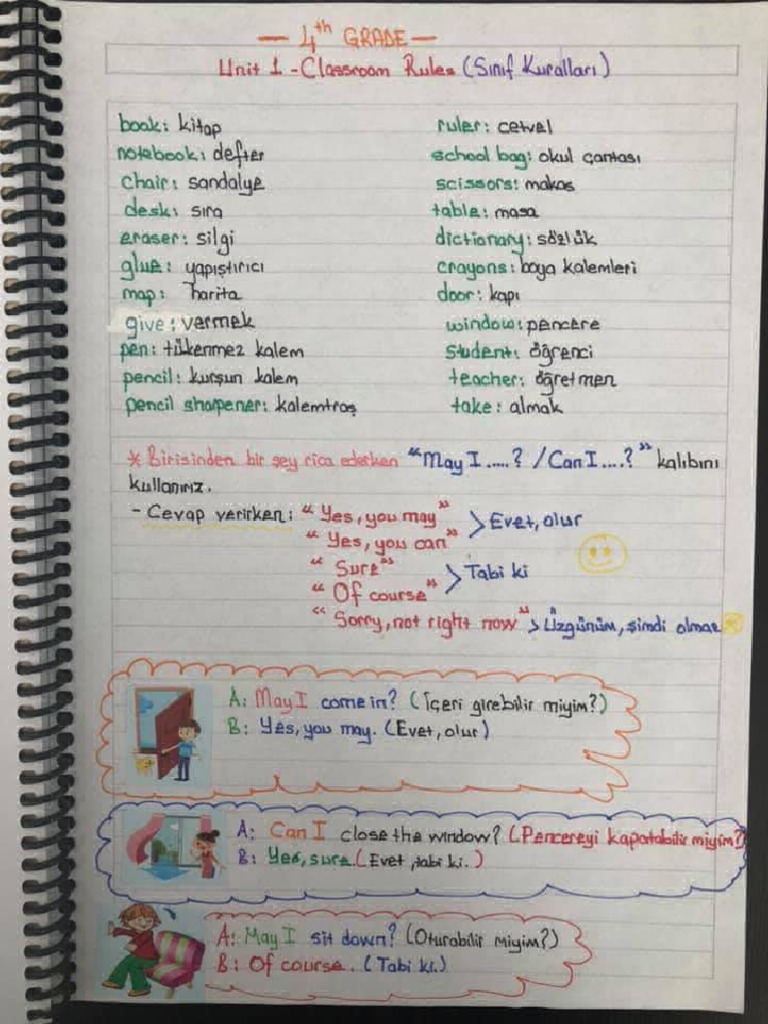 — 4th GRADE —
Unit 1 - Classroom Rules (Sınıf Kuralları)
book: kitap
notebook: defter
chair: sandalye
desk: sıra
eraser: silgi
glue: yapıştırıcı
map: harita
give: vermek
pen: tükenmez kalem
pencil: kurşun kalem
pencil sharpener: kalemtraş
ruler: cetvel
school bag: okul çantası
scissors: makas
table: masa
dictionary: sözlük
crayons: boya kalemleri
door: kapı
window: pencere
student: öğrenci
teacher: öğretmen
take: almak
* Birisinden bir şey rica ederken "May I .....? / Can I ....?" kalıbını
kullanırız.
- Cevap verirken: "Yes, you may" > Evet, olur
"Yes, you can"
"Sure" > Tabi ki
"Of course"
"Sorry, not right now" > Üzgünüm, şimdi olmaz
A: May I come in? (İçeri girebilir miyim?)
B: Yes, you may. (Evet, olur)
A: Can I close the window? (Pencereyi kapatabilir miyim?)
B: Yes, sure. (Evet, tabi ki.)
A: May I sit down? (Oturabilir miyim?)
B: Of course. (Tabi ki.)